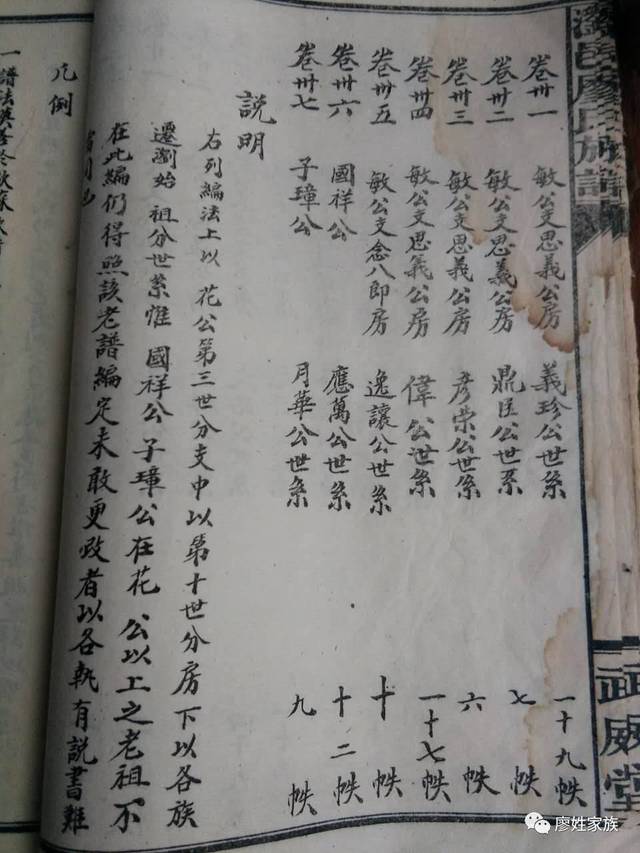 廖氏族譜
武威堂
卷卅一 敏公支思義公房 義珍公世系 一十九帙
卷卅二 敏公支思義公房 鼎臣公世系 七帙
卷卅三 敏公支思義公房 彥榮公世系 六帙
卷卅四 敏公支思義公房 偉公世系 一十七帙
卷卅五 敏公支念八即房 逸讓公世系 十帙
卷卅六 國祥公 應萬公世系 十二帙
卷卅七 子璋公 月華公世系 九帙
説明
右列編法上以 花公第三世分支中以第十世分房下以各族
遷瀏始 祖分世系惟 國祥公子璋公在花 公以上之老祖不
在此編仍得照該老譜編定未敢更改者以各執有説書難
凡例
一譜法
廖姓家族